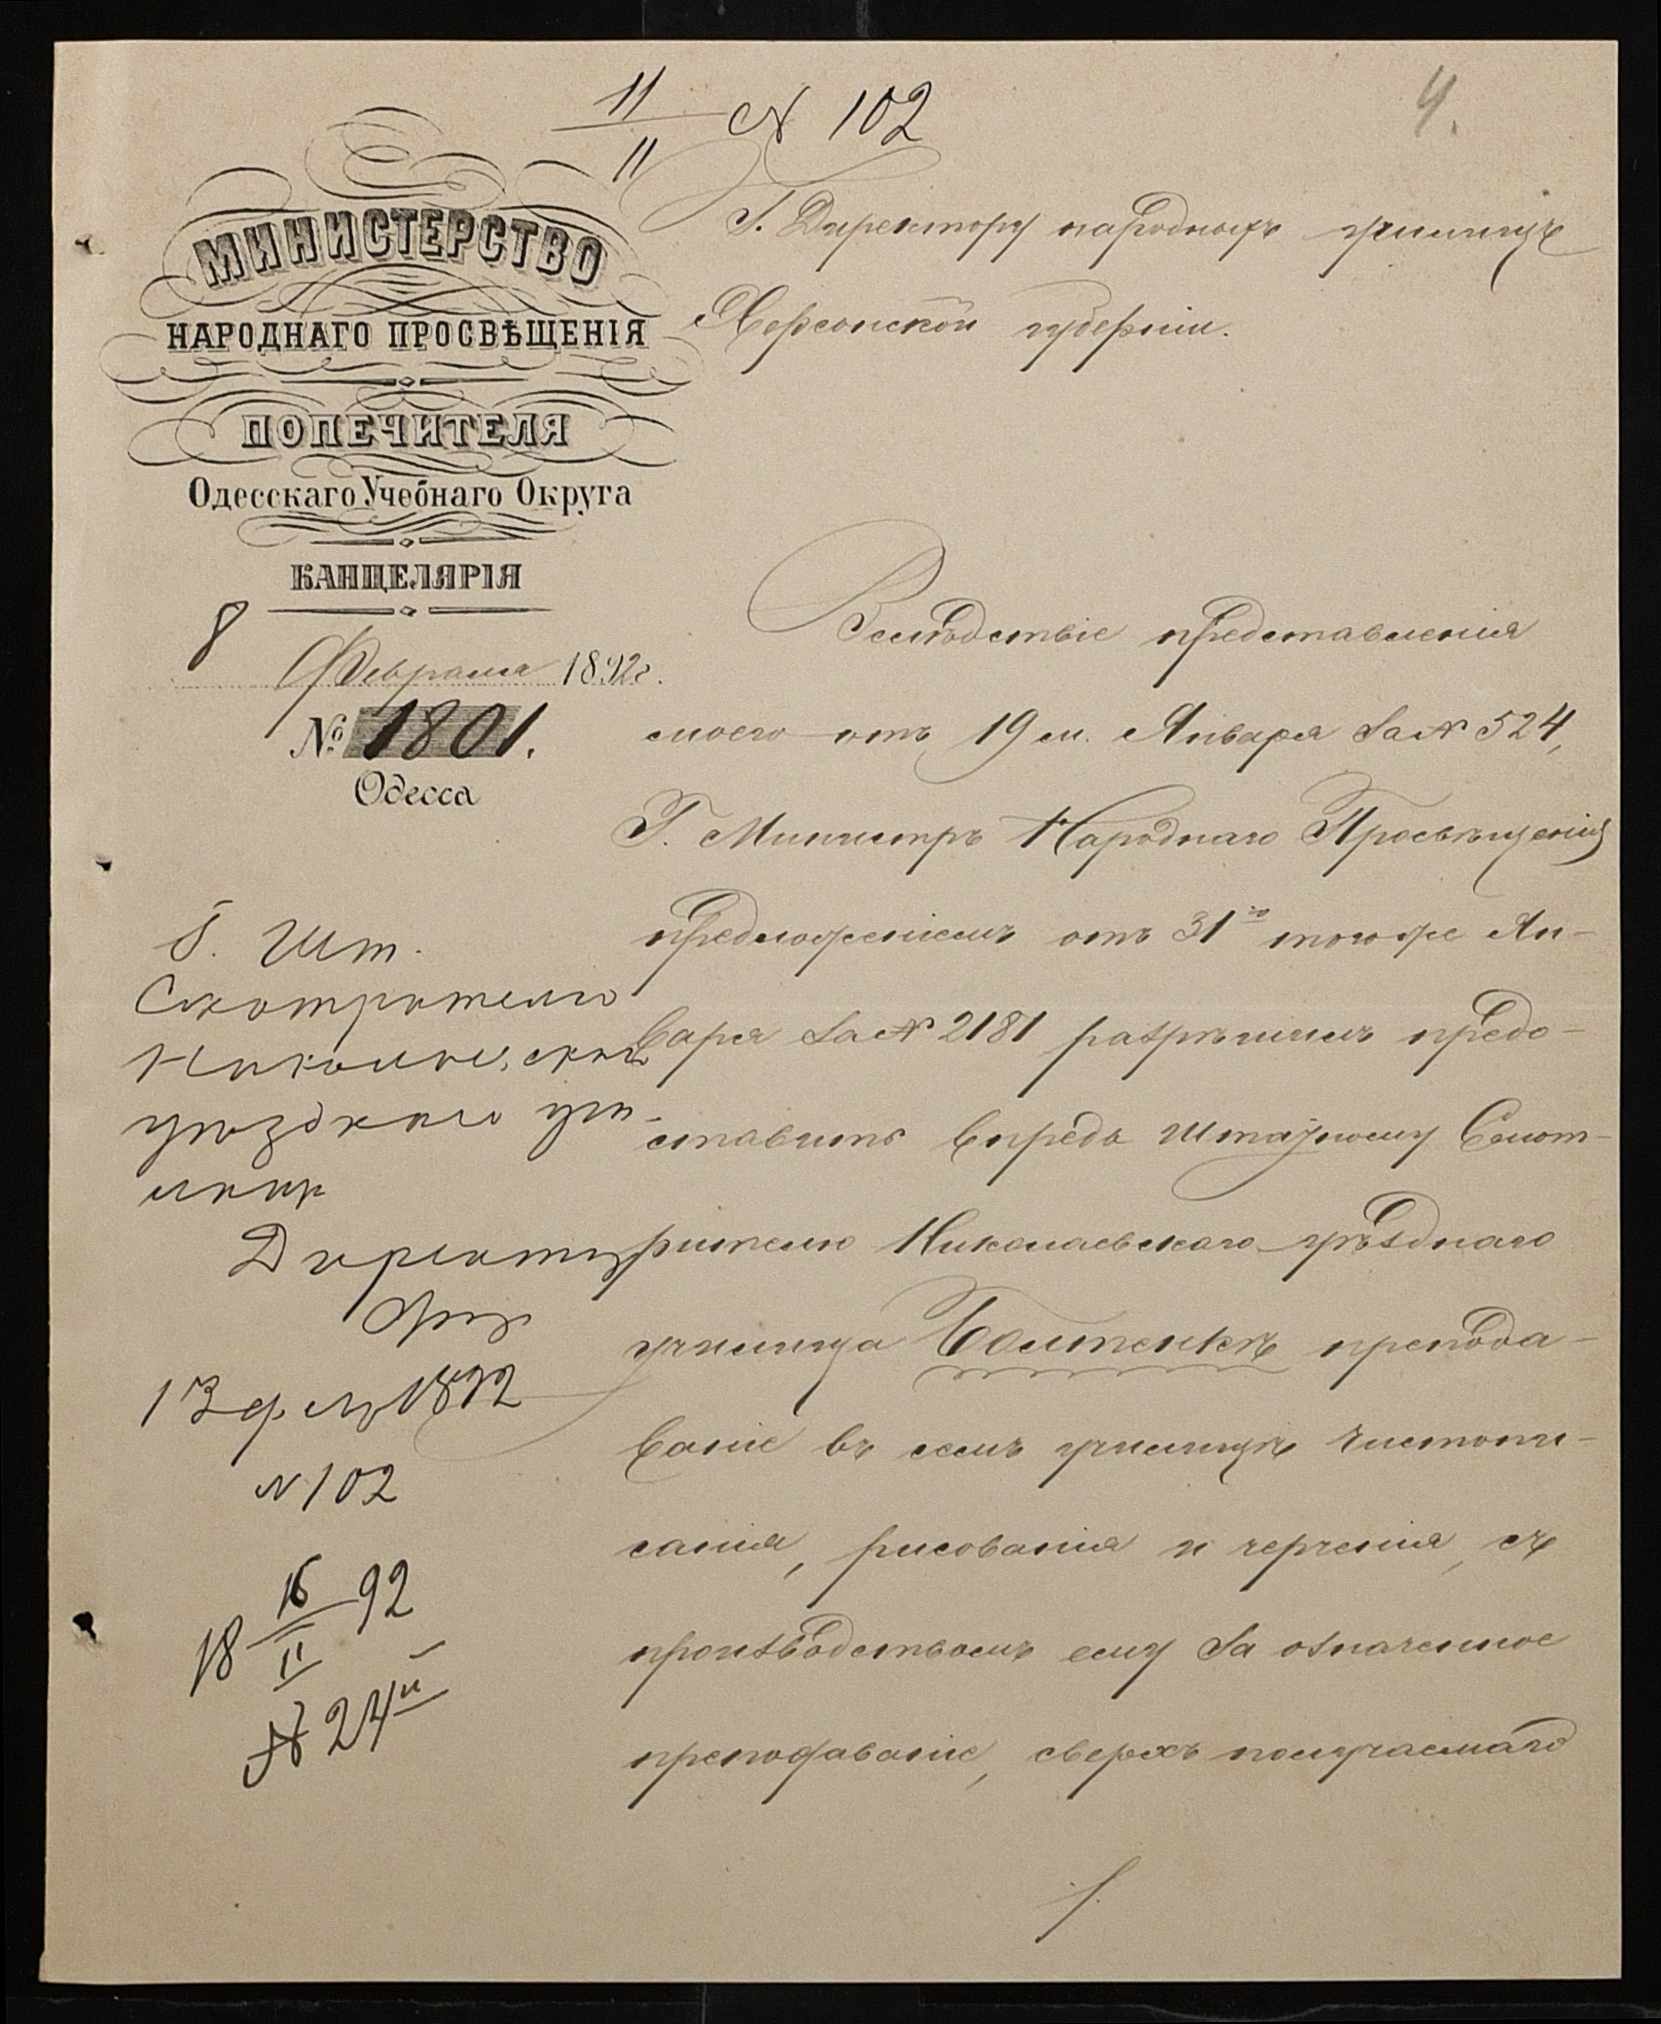 11/11 № 102
4.
МИНИСТЕРСТВО
НАРОДНАГО ПРОСВѢЩЕНІЯ
ПОПЕЧИТЕЛЯ
Одесскаго Учебнаго Округа
КАНЦЕЛЯРІЯ
8 Февраля 1892 г.
№ 1801.
Одесса
Г. Директору народныхъ училищъ
Херсонской губерніи.
Вслѣдствіе представленія
моего отъ 19 м. Января за № 524,
Г. Министръ Народнаго Просвѣщенія
предложеніемъ отъ 31го того же Ян-
варя за № 2181 разрѣшилъ предо-
ставить впредь штатному Смот-
рителю Николаевскаго уѣзднаго
училища Болтенкѣ препода-
ваніе въ семъ училищѣ чистопи-
санія, рисованія и черченія, съ
производствомъ ему за означенное
преподаваніе, сверхъ получаемаго
Г. Шт.
Смотрителю
Николаевскаго
уѣзднаго учи-
лища
Директоръ
13 фев 1892
№ 102
18 16/II 92
№ 24й